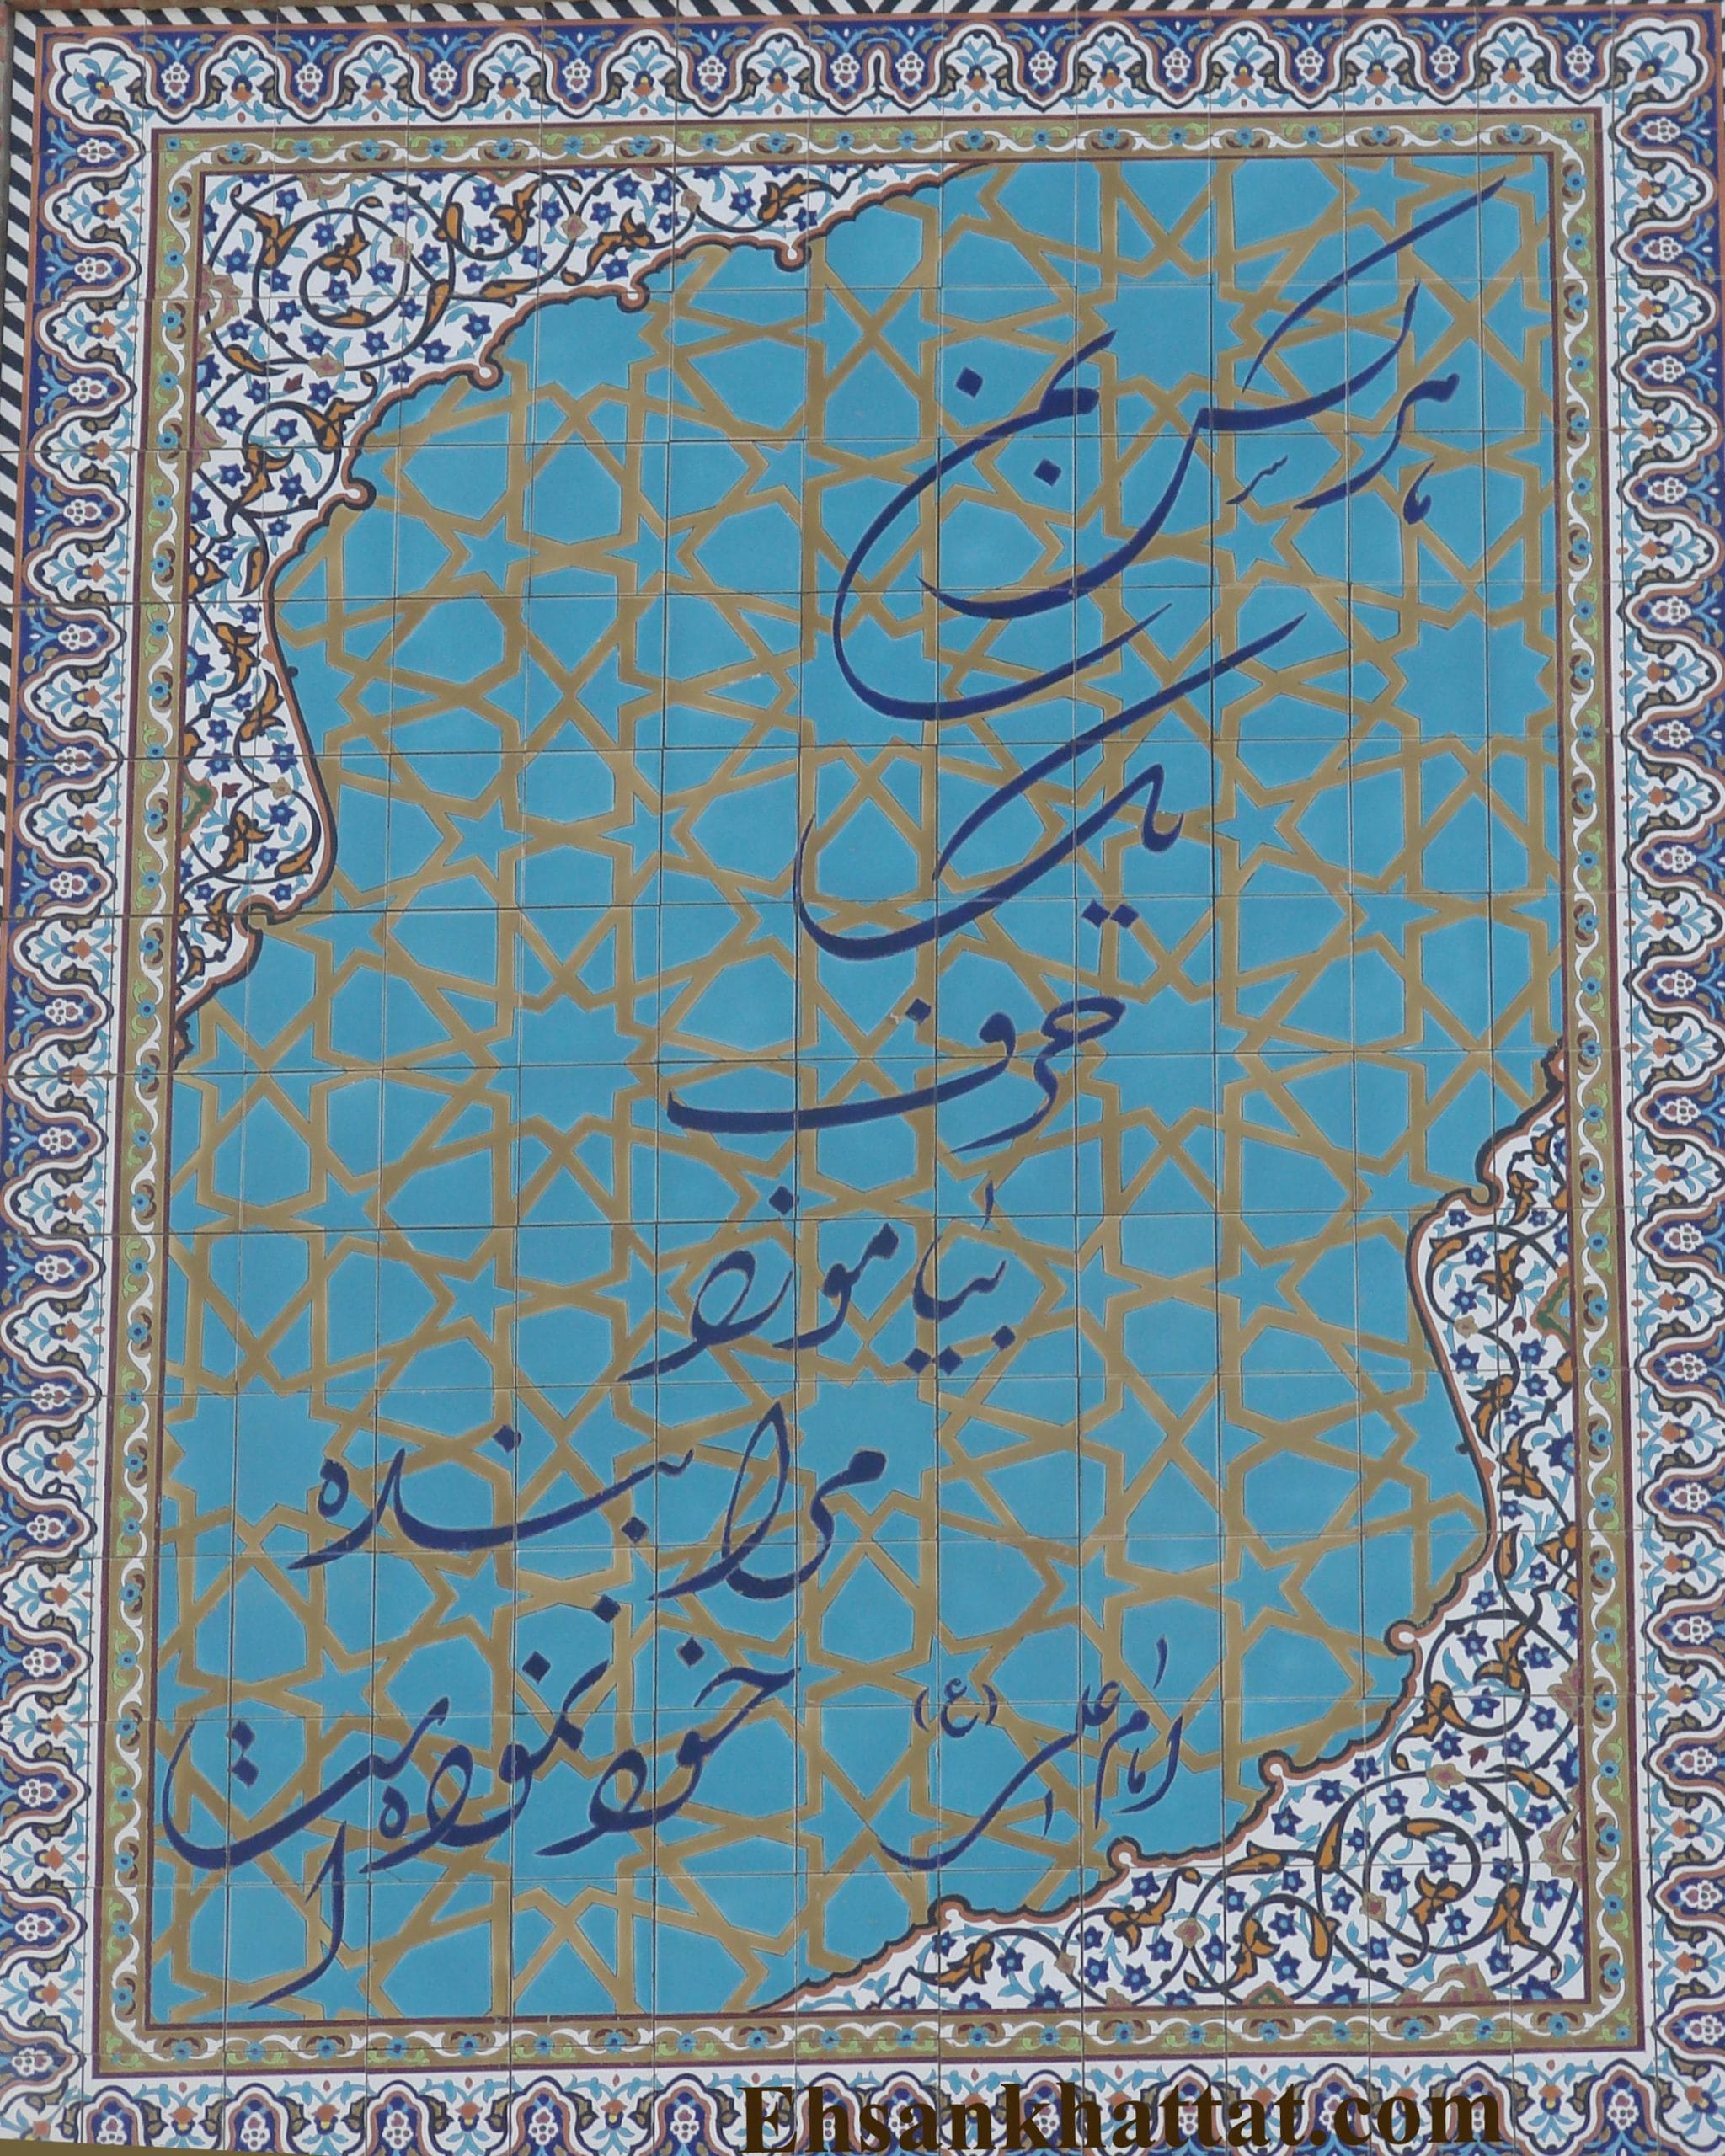 هرکس بمن
یک
حرف
بیاموزد
مرا بنده
خود نموده است
امام علی (ع)
Ehsankhattat.com